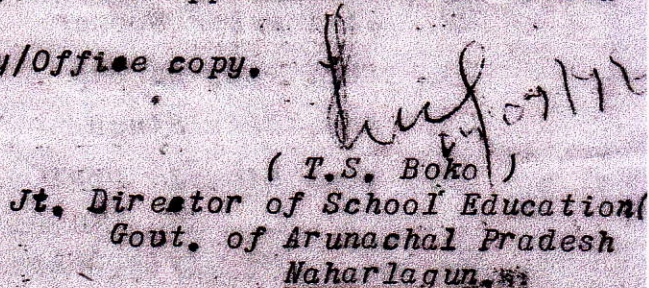 y/Office copy.
( T.S. Boko )
Jt. Director of School Education(
Govt. of Arunachal Pradesh
Naharlagun.